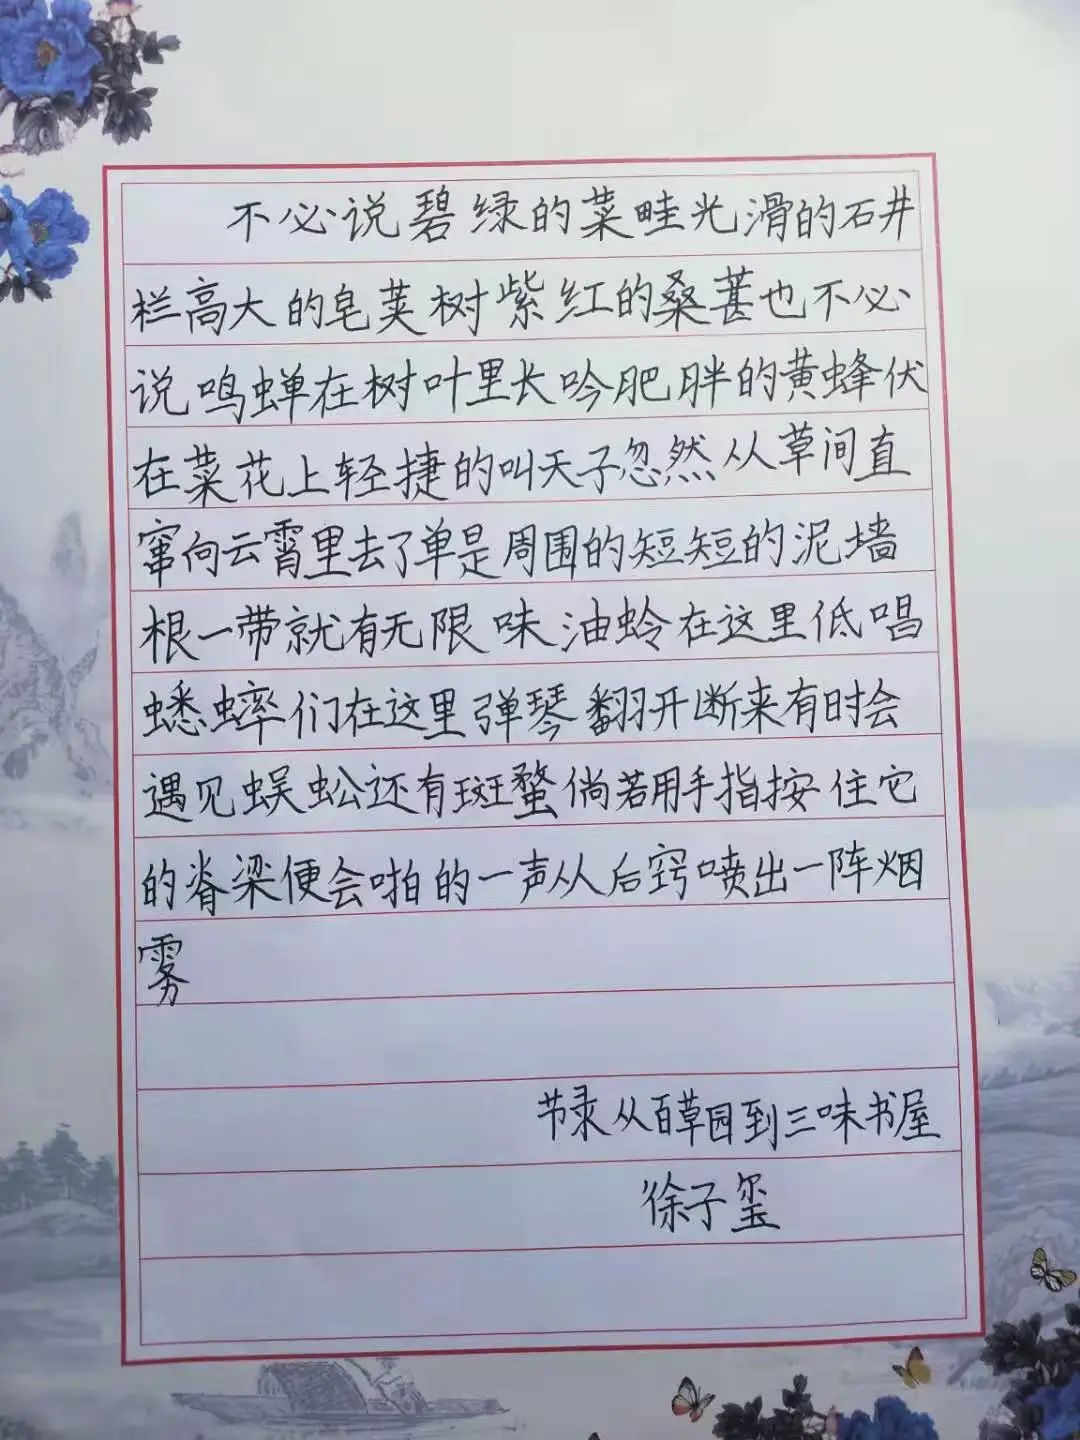 不必说碧绿的菜畦光滑的石井
栏高大的皂荚树紫红的桑葚也不必
说鸣蝉在树叶里长吟肥胖的黄蜂伏
在菜花上轻捷的叫天子忽然从草间直
窜向云霄里去了单是周围的短短的泥墙
根一带就有无限味油蛉在这里低唱
蟋蟀们在这里弹琴翻开断来有时会
遇见蜈蚣还有斑蝥倘若用手指按住它
的脊梁便会啪的一声从后窍喷出一阵烟
雾
节录从百草园到三味书屋
徐子玺